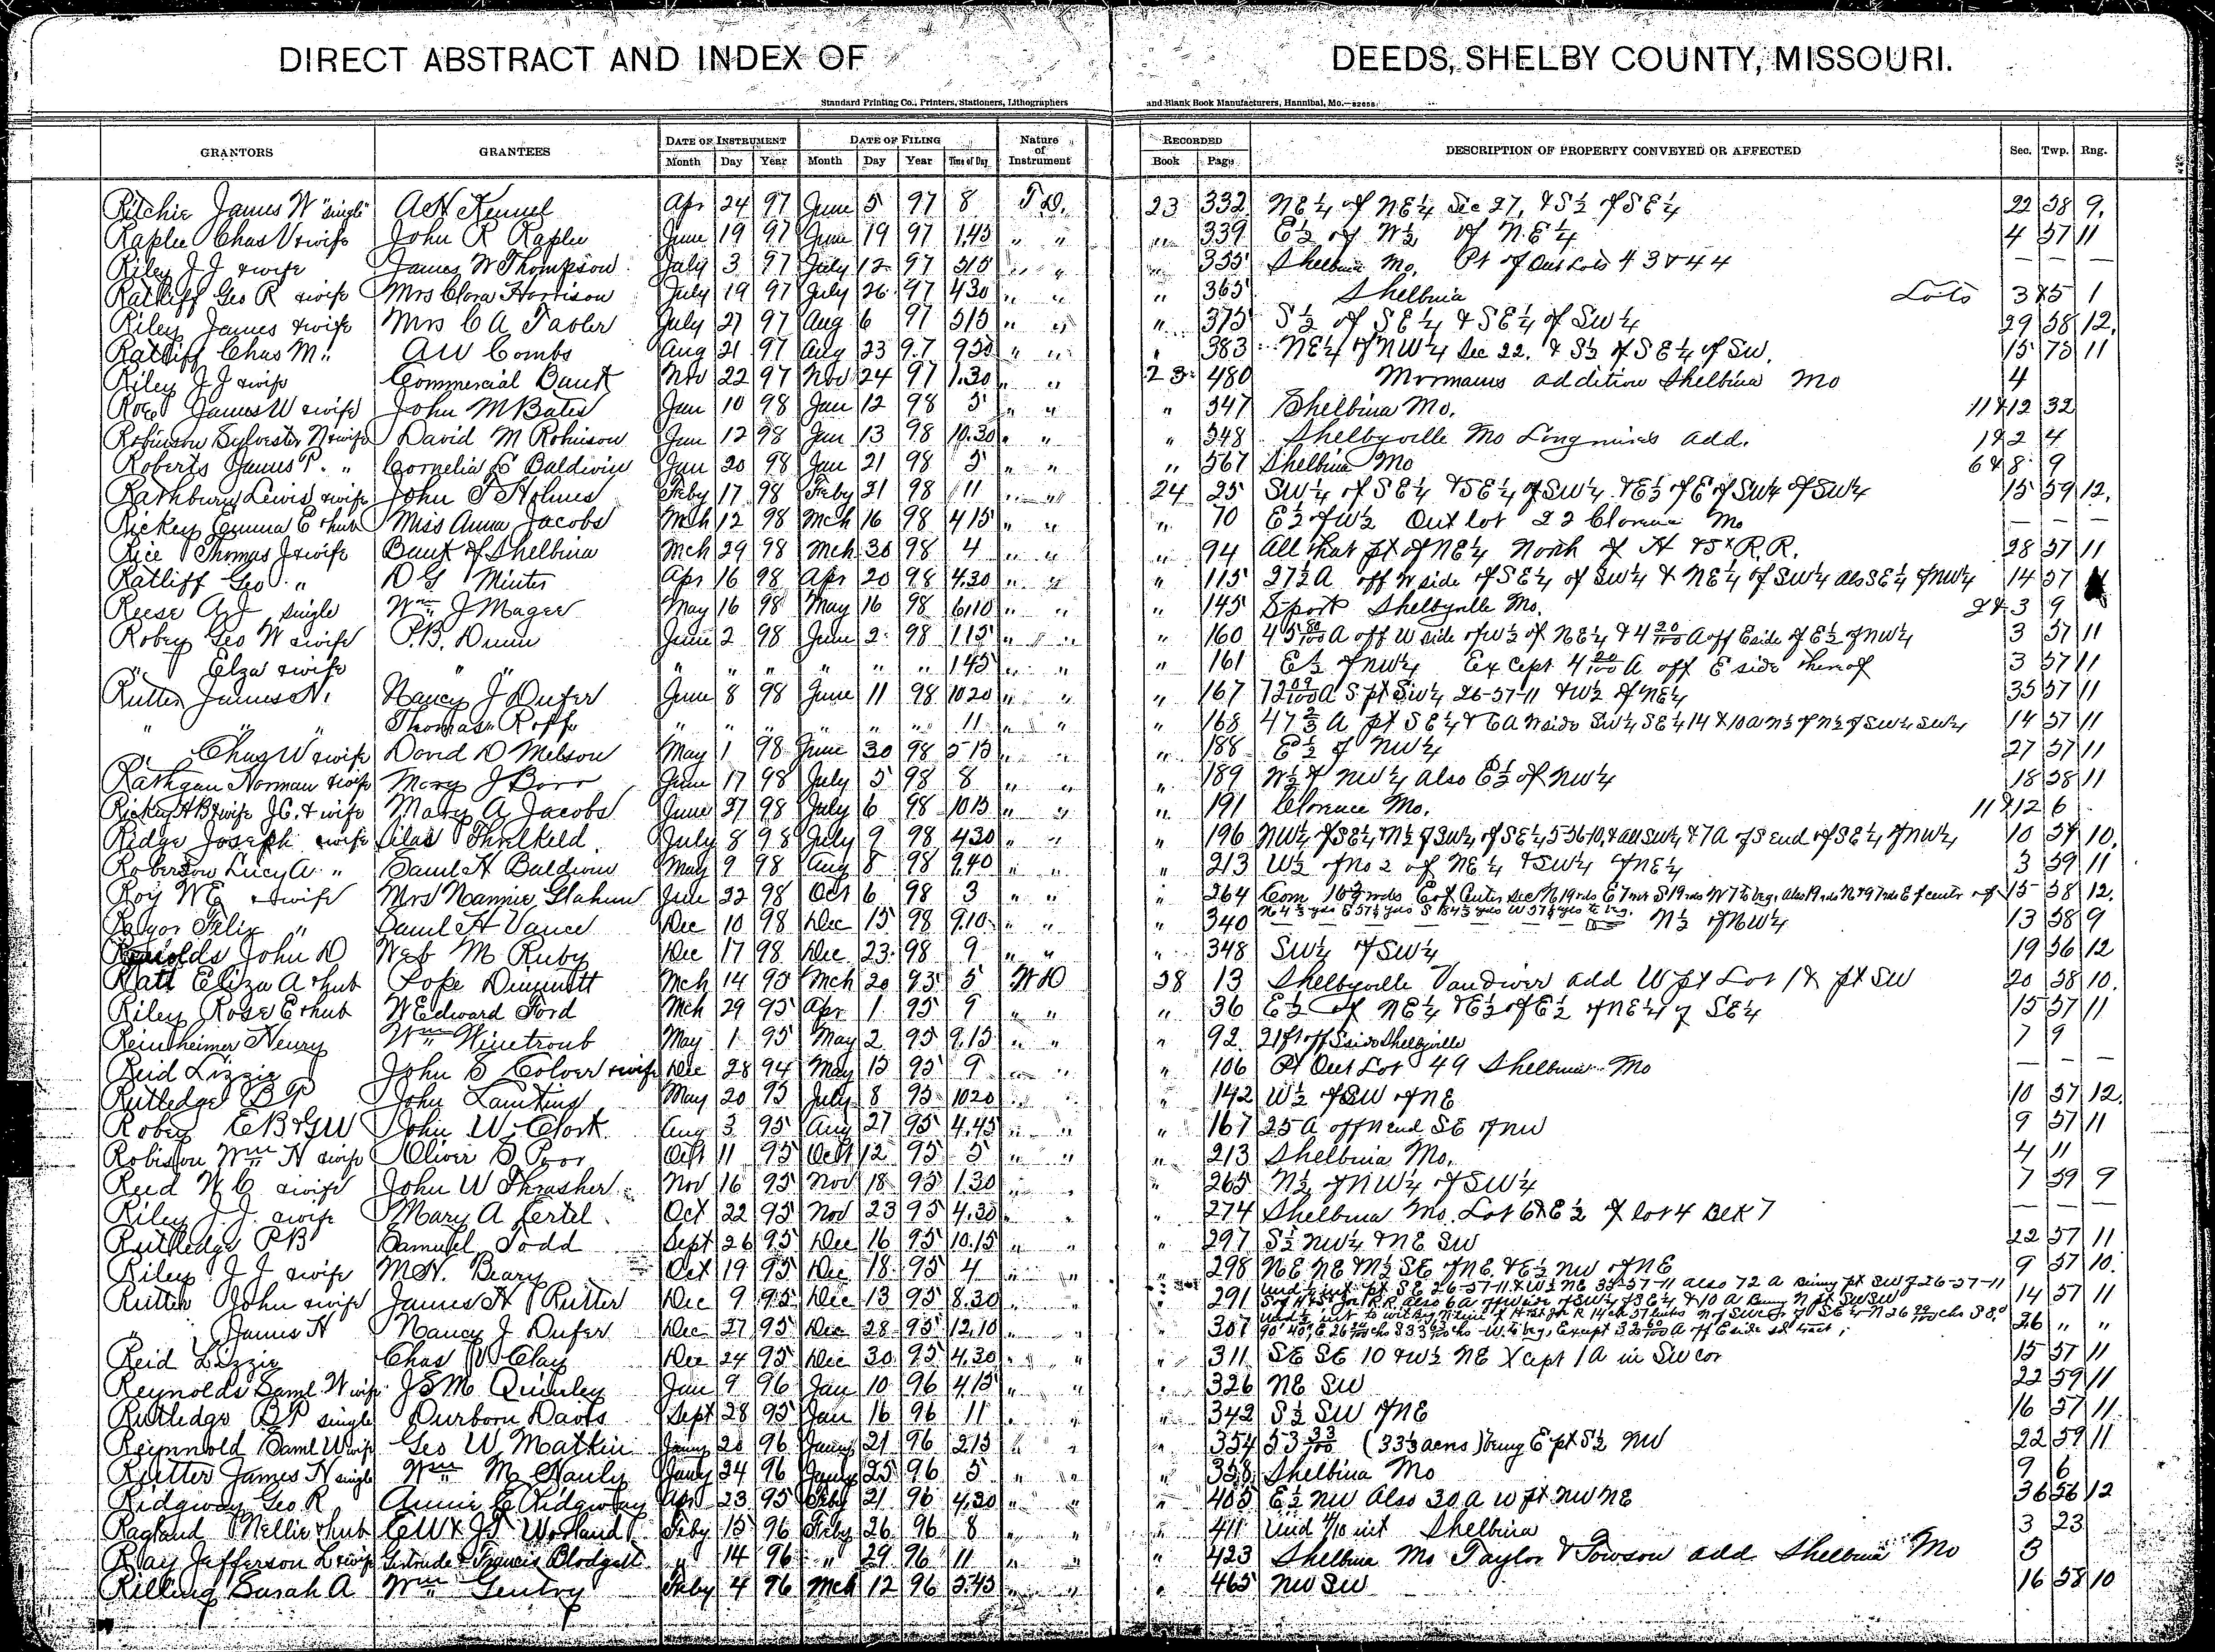 DIRECT ABSTRACT AND INDEX OF DEEDS, SHELBY COUNTY, MISSOURI.
Standard Printing Co., Printers, Stationers, Lithographers and Blank Book Manufacturers, Hannibal, Mo.
GRANTORS GRANTEES DATE OF INSTRUMENT DATE OF FILING Nature of Instrument RECORDED DESCRIPTION OF PROPERTY CONVEYED OR AFFECTED Sec. Twp. Rng.
Month Day Year Month Day Year Time of Day Book Page
Ritchie James W "single" A H Kennel Apr 24 97 June 5 97 8 T D. 23 332 NE 1/4 of NE 1/4 Sec 27, & S 1/2 of SE 1/4 22 58 9.
Raplee Chas V & wife John R Raplee June 19 97 June 19 97 1,45 " " " 339 E 1/2 of W 1/2 of N.E 1/4 4 57 11
Riley J J & wife James W Thompson July 3 97 July 12 97 515 " " " 355 Shelbina Mo. Pt of Out Lots 43 & 44 — — —
Ratliff Geo R & wife Mrs Clora Harrison July 19 97 July 26 97 430 " " " 365 Shelbina Lots 3 & 5 1
Riley James & wife Mrs C A Tabler July 27 97 Aug 6 97 515 " " " 375 S 1/2 of SE 1/4 & SE 1/4 of SW 1/4 29 58 12.
Ratliff Chas M " A W Combs Aug 21 97 Aug 23 97 920 " " " 383 NE 1/4 of NW 1/4 Sec 22. & S 1/2 of SE 1/4 of SW. 15 75 11
Riley J J & wife Commercial Bank Nov 22 97 Nov 24 97 1.30 " " 23 480 Mormans addition Shelbina Mo 4
James W & wife John M Bates Jan 10 98 Jan 12 98 5 " " " 547 Shelbina Mo. 11 & 12 32
Robinson Sylvester N & wife David M Robinson Jan 12 98 Jan 13 98 10.30 " " " 548 Shelbyville Mo Longmires add. 1 & 2 4
Roberts James P. " Cornelia E Baldwin Jan 20 98 Jan 21 98 5 " " " 567 Shelbina Mo 6 & 8 9
Rathburn Lewis & wife John T Holmes Feby 17 98 Feby 21 98 11 " " 24 25 SW 1/4 of SE 1/4 & SE 1/4 of SW 1/4 & E 1/2 of E of SW 1/4 of SW 1/4 15 59 12.
Rickey Emma E & hub Miss Anna Jacobs Mch 12 98 Mch 16 98 415 " " " 70 E 1/2 of W 1/2 Out lot 22 Clarence Mo — — —
Rice Thomas J & wife Bank of Shelbina Mch 29 98 Mch 30 98 4 " " " 94 All that pt of NE 1/4 North of H & St R.R. 28 57 11
Ratliff Geo " D G Minter Apr 16 98 Apr 20 98 4.30 " " " 115 27 1/2 A off W side of SE 1/4 of SW 1/4 & NE 1/4 of SW 1/4 also SE 1/4 of NW 1/4 14 57
Reese A J single Wm J Mager May 16 98 May 16 98 610 " " " 145 S part Shelbyville Mo. 2 & 3 9
Robey Geo W & wife P.B. Dunn June 2 98 June 2 98 115 " " " 160 45 80/100 A off W side of W 1/2 of NE 1/4 & 4 20/100 A off E side of E 1/2 of NW 1/4 3 57 11
" Elza & wife " " " " " " " " 145 " " " 161 E 1/2 of NW 1/4 Except 4 20/100 A off E side thereof 3 57 11
Rutter James N. Nancy J Dufer June 8 98 June 11 98 1020 " " " 167 72 09/100 A S pt SW 1/4 26-57-11 & W 1/2 of NE 1/4 35 57 11
" " Thomas Roffe " " " " " " 11 " " " 168 47 2/3 A pt SE 1/4 & 6 A N side SW 1/4 SE 1/4 14 & 10 A N 1/2 of N 1/2 of SW 1/4 SW 1/4 14 57 11
" Chas W & wife David D Melson May 1 98 June 30 98 515 " " " 188 E 1/2 of NW 1/4 27 57 11
Rathgan Norman & wife Mary J Barr June 17 98 July 5 98 8 " " " 189 W 1/2 of NW 1/4 also E 1/2 of NW 1/4 18 58 11
Rickey H B & wife J C. & wife Mary A Jacobs June 27 98 July 6 98 1015 " " " 191 Clarence Mo. 11 & 12 6
Ridge Joseph & wife Silas Threlkeld July 8 98 July 9 98 430 " " " 196 NW 1/4 of SE 1/4, N 1/2 of SW 1/4 of SE 1/4 5-56-10, & all SW 1/4 & 7 A of S end of SE 1/4 of NW 1/4 10 57 10.
Roberson Lucy A " Saml H Baldwin May 9 98 Aug 8 98 9.40 " " " 213 W 1/2 of No 2 of NE 1/4 & SW 1/4 of NE 1/4 3 59 11
Roy W E & wife Mrs Nannie Glahn June 22 98 Oct 6 98 3 " " " 264 Com 16 rods E of Center Sec N 19 rds E 7 S 19 rds W 7 to beg, also 19 rds N & 97 rds E of center of 15 58 12.
Felix " Saml H Vance Dec 10 98 Dec 15 98 9.10 " " " 340 N 1/2 of NW 1/4 13 58 9
John D Web M Ruby Dec 17 98 Dec 23 98 9 " " " 348 SW 1/4 of SW 1/4 19 56 12
Ratt Eliza A & hub Pope Mch 14 95 Mch 20 95 5 W D 58 13 Shelbyville Vandiver add W pt Lot 1 & pt SW 20 58 10.
Riley Rose E & hub W Edward Ford Mch 29 95 Apr 1 95 9 " " " 36 E 1/2 of NE 1/4 & E 1/2 of E 1/2 of NE 1/4 of SE 1/4 15 57 11
Reintheimer Henry Wm Winetroub May 1 95 May 2 95 9.15 " " " 92 21 ft off S side Shelbyville 7 9
Reid Lizzie John S Colver & wife Dec 28 94 May 15 95 9 " " " 106 Pt Out Lot 49 Shelbina Mo — — —
Rutledge B P John Lambkins May 20 95 July 8 95 1020 " " " 142 W 1/2 of SW of NE 10 57 12.
Robey E B & G W John W Clark Aug 3 95 Aug 27 95 4.45 " " " 167 25 A off N end SE of NW 9 57 11
Robison Wm H & wife Oliver S Poor Oct 11 95 Oct 12 95 5 " " " 213 Shelbina Mo. 4 11
Reid W C & wife John W Thrasher Nov 16 95 Nov 18 95 1.30 " " " 265 N 1/2 of NW 1/4 of SW 1/4 7 59 9
Riley J. J. & wife Mary A Lertel Oct 22 95 Nov 23 95 4.30 " " " 274 Shelbina Mo. Lot 6 & E 1/2 of lot 4 Blk 7 — —
Rutledge P B Samuel Todd Sept 26 95 Dec 16 95 10.15 " " " 297 S 1/2 NW 1/4 & NE SW 22 57 11
Riley J J & wife M H. Beary Oct 19 95 Dec 18 95 4 " " " 298 NE NE N 1/2 SE of NE & E 1/2 NW of NE 9 57 10.
Rutter John & wife James H Rutter Dec 9 95 Dec 13 95 8.30 " " " 291 pt SE 26-57-11 & W 1/2 NE 35-57-11 also 72 A Being pt SW of 26-57-11 14 57 11
" James H Nancy J Dufer Dec 27 95 Dec 28 95 12.10 " " " 307 W. to beg, Except A off E side sd tract; 26 " "
Reid Lizzie Chas W Clay Dec 24 95 Dec 30 95 4.30 " " " 311 SE SE 10 & W 1/2 NE Xcept 1 A in SW cor 15 57 11
Reynolds Saml W & wife J S M Quinley Jan 9 96 Jan 10 96 4.15 " " " 326 NE SW 22 59 11
Rutledge B P single Durborn Davis Sept 28 95 Jan 16 96 11 " " " 342 S 1/2 SW of NE 16 57 11
Reynnold Saml W & wife Geo W Matkin Jany 20 96 Jany 21 96 215 " " " 354 53 33/100 (33 1/3 acres) being E pt S 1/2 NW 22 59 11
Rutter James N single Wm McNauly Jany 24 96 Jany 25 96 5 " " " 358 Shelbina Mo 9 6
Ridgway Geo R Annie E Ridgway Apr 23 95 Feby 21 96 4.30 " " " 405 E 1/2 NW Also 30 A W pt NW NE 36 56 12
Ragland Nellie & hub E W & J T Worland Feby 15 96 Feby 26 96 8 " " " 411 Und 4/10 int Shelbina 3 23
Ray Jefferson L & wife Gertrude & Francis Blodgett " 14 96 " 29 96 11 " " " 423 Shelbina Mo Taylor & Towson add Shelbina Mo 3
Rilling Sarah A Wm Gentry Feby 4 96 Mch 12 96 5.45 " " " 465 NW SW 16 58 10